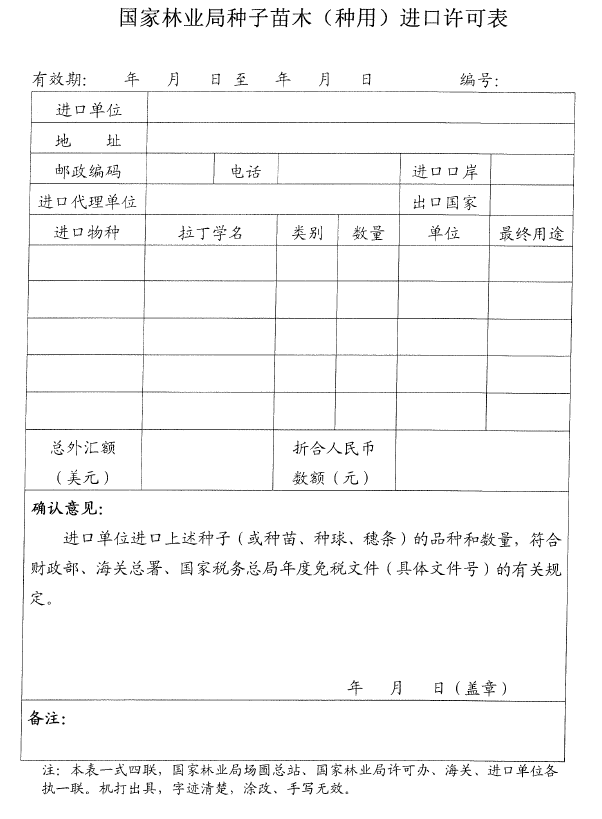 国家林业局种子苗木（种用）进口许可表
有效期： 年 月 日 至 年 月 日 编号：
进口单位
地 址
邮政编码 电话 进口口岸
进口代理单位 出口国家
进口物种 拉丁学名 类别 数量 单位 最终用途
总外汇额 折合人民币
（美元） 数额（元）
确认意见：
进口单位进口上述种子（或种苗、种球、穗条）的品种和数量，符合
财政部、海关总署、国家税务总局年度免税文件（具体文件号）的有关规
定。
年 月 日（盖章）
备注：
注：本表一式四联，国家林业局场圃总站、国家林业局许可办、海关、进口单位各
执一联。机打出具，字迹清楚，涂改、手写无效。